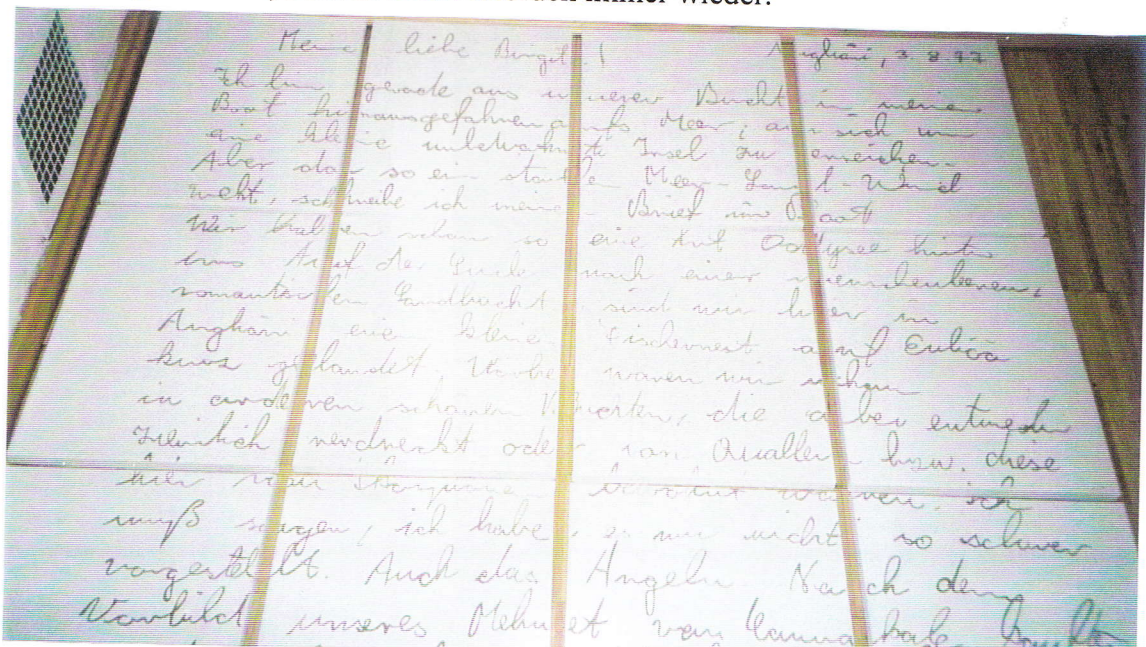 immer wieder.
Meine liebe Birgit!
Anghäri, 3. 8. 97
Ich bin gerade aus unserer Bucht in meine
Boot hinausgefahren aufs Meer, an sich um
eine kleine unbewohnte Insel zu erreichen.
Aber da so ein starker Meer-Land-Wind
weht, schreibe ich meinen Brief im Boot
Wir haben schon so eine Art Oddysee hinter
uns Auf der Suche nach einer menschenleeren,
romantischen Sandbucht sind wir hier in
Anghäri eine kleine Fischernest auf Euböa
kurz gelandet. Vorher waren wir schon
in anderen schönen Buchten, die aber entweder
ziemlich verdreckt oder von Quallen bzw. diese
hier von waren. ich
muß sagen, ich habe es mir nicht so schwer
vorgestellt. Auch das Angeln Nach dem
Vorbild unseres Mehmet von